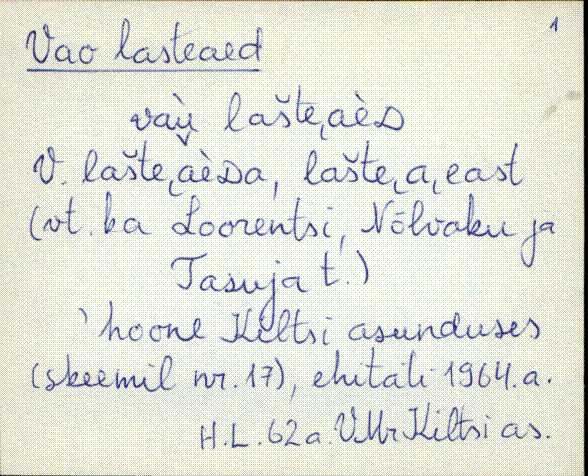 1
Vao lasteaed
vaù lašte‿aèD
V. lašte‿aèDa, lašte‿a‿east
(vt. ka Loorentsi, Nõlvaku ja
Tasuja t.)
'hoone Kiltsi asunduses
(skeemil nr. 17), ehitati 1964.a.
H.L. 62a. VMr Kiltsi as.